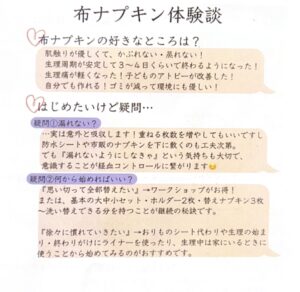 布ナプキン体験談
布ナプキンの好きなところは？
肌触りが優しくて、かぶれない・蒸れない！
生理周期が安定して３〜４日くらいで終わるようになった！
生理痛が軽くなった！子どものアトピーが改善した！
自分でも作れる！ゴミが減って環境にも優しい！
はじめたいけど疑問…
疑問①漏れない？
…実は意外と吸収します！重ねる枚数を増やしてもいいですし
防水シートや市販のナプキンを下に敷くのも工夫次第。
でも『漏れないようにしなきゃ』という気持ちも大切で、
意識することが経血コントロールに繋がります😊
疑問②何から始めればいい？
『思い切って全部替えたい』→ワークショップがお得！
または、基本の大中小セット・ホルダー2枚・替えナプキン3枚
〜洗い替えできる分を持つことが継続の秘訣です。
『徐々に慣れていきたい』→おりものシート代わりや生理の始ま
り・終わりがけにライナーを使ったり、生理中は家にいるときに
使うことから始めてみるのがおすすめです